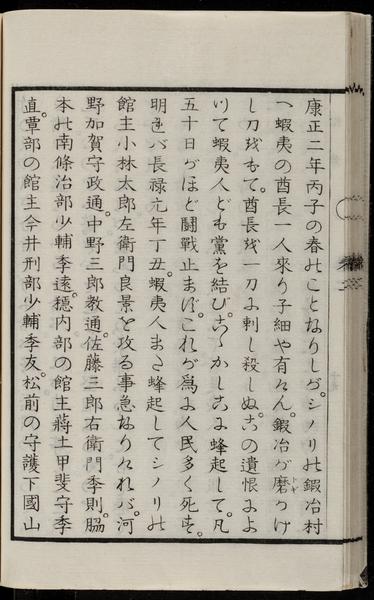 康正二年丙子の春のことなりしが。シノリの鍜冶村
へ蝦夷の酋長一人來り子細や有けん。鍜冶が磨つけ
し刀もて。酋長を一刀に刺し殺しぬ。この遺恨によ
りて蝦夷人ども黨を結び。こゝかしこに蜂起して。凡
五十日がほど鬪戰止まず。これが爲に人民多く死す。
明れバ長祿元年丁丑。蝦夷人また蜂起してシノリの
館主小林太郎左衛門良景を攻る事急なりけれバ。河
野加賀守政通。中野三郎教通。佐藤三郎右衛門季則。脇
本の南條治部少輔季遠。穏内部の館主蔣土甲斐守季
直。覃部の館主今井刑部少輔季友。松前の守護下國山